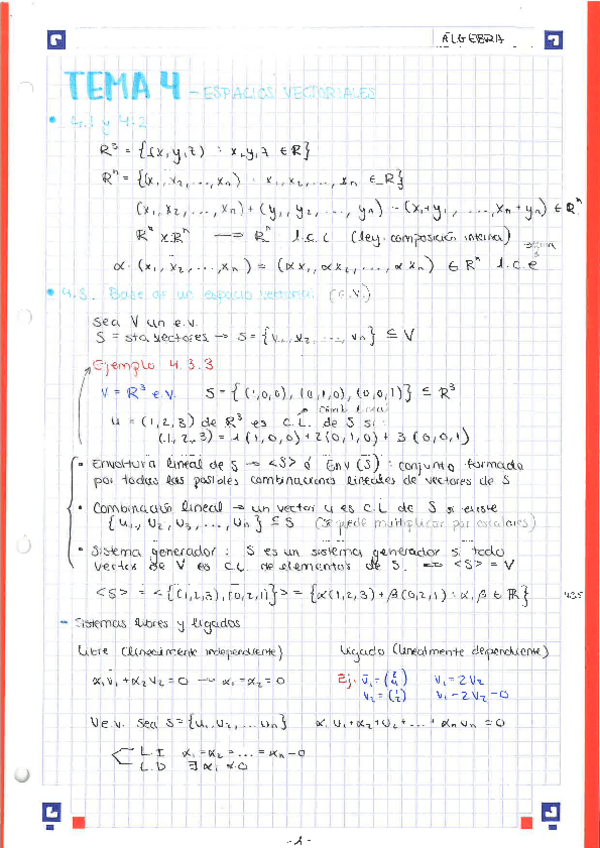 ÁLGEBRA
TEMA 4 - ESPACIOS VECTORIALES
• 4.1 y 4.2
R³ = {(x,y,z) : x,y,z ∈ R}
Rⁿ = {(x₁, x₂, ..., xₙ) : x₁, x₂, ..., xₙ ∈ R}
(x₁, x₂, ..., xₙ) + (y₁, y₂, ..., yₙ) = (x₁+y₁, ..., xₙ+yₙ) ∈ Rⁿ
Rⁿ x Rⁿ → Rⁿ l.c.i (ley composición interna)
α · (x₁, x₂, ..., xₙ) = (αx₁, αx₂, ..., αxₙ) ∈ Rⁿ l.c.e
• 4.3. Base de un espacio vectorial (e.v.)
Sea V un e.v.
S = sta. vectores → S = {v₁, v₂, ..., vₙ} ⊆ V
Ejemplo 4.3.3
V = R³ e.v. S = {(1,0,0), (0,1,0), (0,0,1)} ⊆ R³
comb. lineal
u = (1,2,3) de R³ es C.L. de S si:
(1,2,3) = 1(1,0,0) + 2(0,1,0) + 3(0,0,1)
• Envoltura lineal de S → <S> ó Env (S) : conjunto formado
por todas las posibles combinaciones lineales de vectores de S
• Combinación lineal → un vector u es C.L de S si existe
{u₁, u₂, u₃, ..., uₙ} ⊆ S (se puede multiplicar por escalares)
• Sistema generador : S es un sistema generador si todo
vector de V es C.L. de elementos de S. ⇒ <S> = V
<S> = <{(1,2,3), (0,2,1)}> = {α(1,2,3) + β(0,2,1) : α, β ∈ R} 4.3.5
- Sistemas libres y ligados
Libre (linealmente independiente) Ligado (linealmente dependiente)
α₁v₁ + α₂v₂ = 0 → α₁ = α₂ = 0 Ej: v₁ = (2 4) v₁ = 2v₂
v₂ = (1 2) v₁ - 2v₂ = 0
V e.v. Sea S = {u₁, u₂, ... uₙ} α₁u₁ + α₂u₂ + ... + αₙuₙ = 0
L.I α₁ = α₂ = ... = αₙ = 0
L.D ∃ αᵢ ≠ 0
-1-